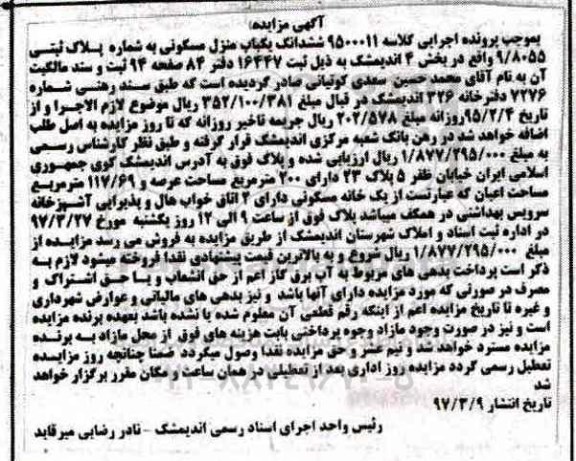 آگهی مزایده:
بموجب پرونده اجرایی کلاسه ۹۵۰۰۰۱۱ ششدانگ یکباب منزل مسکونی به شماره پلاک ثبتی
۹/۸۰۵۵ واقع در بخش ۴ اندیمشک به ذیل ثبت ۱۶۴۴۷ دفتر ۸۴ صفحه ۹۴ ثبت و سند مالکیت
آن به نام آقای محمد حسین سعدی کوتیانی صادر گردیده است که طبق سند رهنی شماره
۷۲۷۶ دفترخانه ۳۲۶ اندیمشک در قبال مبلغ ۳۵۲/۱۰۰/۳۸۱ ریال موضوع لازم الاجرا و از
تاریخ ۹۵/۲/۴ روزانه مبلغ ۲۰۲/۵۷۸ ریال جریمه تاخیر روزانه که تا روز مزایده به اصل طلب
اضافه خواهد شد در رهن بانک شعبه مرکزی اندیمشک قرار گرفته و طبق نظر کارشناس رسمی
به مبلغ ۱/۸۷۷/۲۹۵/۰۰۰ ریال ارزیابی شده و پلاک فوق به آدرس اندیمشک کوی جمهوری
اسلامی ایران خیابان ظفر ۵ پلاک ۲۳ دارای ۲۰۰ مترمربع مساحت عرصه و ۱۱۷/۶۹ مترمربع
مساحت اعیان که عبارتست از یک خانه مسکونی دارای ۲ اتاق خواب هال و پذیرایی آشپزخانه
سرویس بهداشتی در همکف میباشد پلاک فوق از ساعت ۹ الی ۱۲ روز یکشنبه مورخ ۹۷/۳/۲۷
در اداره ثبت اسناد و املاک شهرستان اندیمشک از طریق مزایده به فروش می رسد مزایده از
مبلغ ۱/۸۷۷/۲۹۵/۰۰۰ ریال شروع و به بالاترین قیمت پیشنهادی نقدا فروخته میشود لازم به
ذکر است پرداخت بدهی های مربوط به آب برق گاز اعم از حق انشعاب و یا حق اشتراک و
مصرف در صورتی که مورد مزایده دارای آنها باشد و نیز بدهی های مالیاتی و عوارض شهرداری
و غیره تا تاریخ مزایده اعم از اینکه رقم قطعی آن معلوم شده یا نشده باشد بعهده برنده مزایده
است و نیز در صورت وجود مازاد وجوه پرداختی بابت هزینه های فوق از محل مازاد به برنده
مزایده مسترد خواهد شد و نیم عشر و حق مزایده نقدا وصول میگردد ضمنا چنانچه روز مزایده
تعطیل رسمی گردد مزایده روز اداری بعد از تعطیلی در همان ساعت و مکان مقرر برگزار خواهد
شد
تاریخ انتشار ۹۷/۳/۹
رئیس واحد اجرای اسناد رسمی اندیمشک - نادر رضایی میرقاید